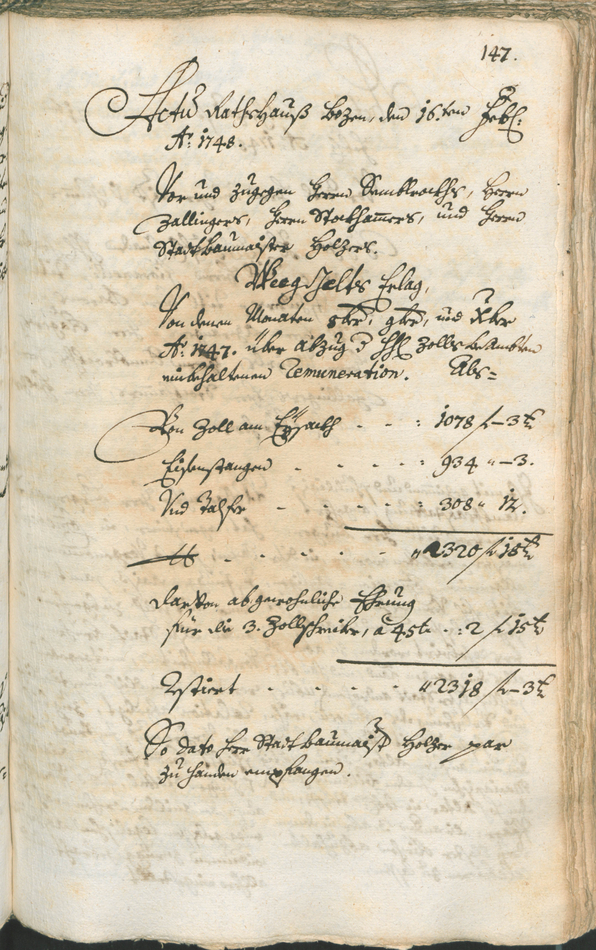 147.
Actũ Rathshauß Bozen, den 16.ten Febr:
Aͦ: 1748.
Vor und zugegen Herrn Herrn
Zallingers, Herrn Stockhamers, und Herrn
Stadtbaumaister Holzers.
Weeg Gelts Erlag,
Von denen Monaten 8ber, 9ber, und Xber
Aͦ: 1747. über abzug 3 Zolls beambten
einbehaltenen Remuneration. Als=
Von Zoll am Eysackh - - : 1078 f - 3 k
Eisenstangen - - - - : 934 " - 3.
Und Talfer - - - - - : 308 " 12.
- - - - - " 2320 f 18 k
darvon abgewohnliche Ehrung
für die 3. Zollschreiber, â 45 k - : 2 f 15 k
Restiert - - - - - " 2318 f - 3 k
So dato Herr Stadtbaumaistr Holzer par
zu handen empfangen.